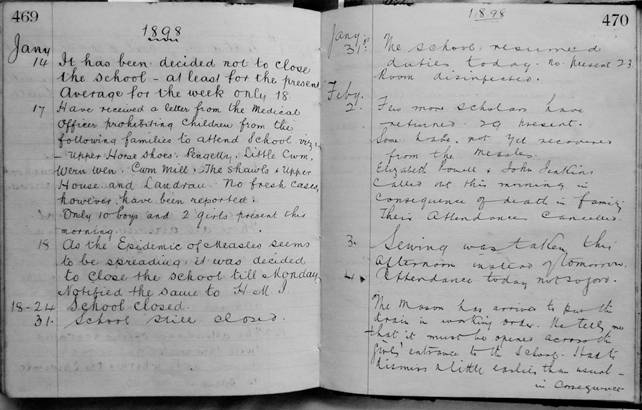 469
1898
Jany
14 It has been decided not to close
the school - at least for the present
Average for the week only 18
17 Have received a letter from the Medical
Officer prohibiting Children from the
following families to attend School viz:
- Upper House Shoes. Pengelly. Little Cwm,
Wern Wen. Cwm Mill. The Shawls & Upper
House and Landrau. No fresh cases,
however have been reported.
Only 10 boys and 2 girls present this
morning
18 As the Epidemic of Measles seems
to be spreading it was decided
to close the school till Monday
Notified the same to H M I
18-24 School closed.
31. School still closed.
1898
470
Jany
31st The school resumed
duties today. No. present 23
Room disinfected.
Feby.
2. Few more scholars have
returned. 29 present.
Some have not yet recovered
from the Measles.
Elizabeth Powell & John Jenkins
called out this morning in
Consequence of death in family
Their Attendances Cancelled.
3. Sewing was taken this
afternoon instead of tomorrow.
4. Attendance today not so good.
The Mason has arrived to put the
drain in working order. He tells me
that it must be opened across the
girls' entrance to the School. Had to
dismiss a little earlier than usual -
in consequence